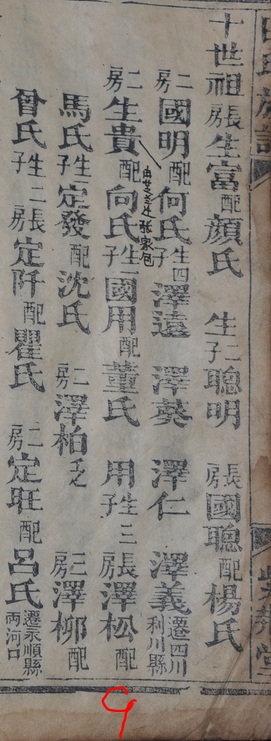 十世祖長房生富配顔氏 生二子聰明 長房國聰配楊氏
二房國明配何氏生四子澤遠 澤葵 澤仁 澤義遷四川利川縣
迁张家包
二房生貴配向氏生子國用配董氏 用生三子長房澤松配
馬氏生子定發配沈氏 二房澤柏乏 三房澤柳配
曾氏生二子長房定阡配瞿氏 二房定旺配呂氏遷永順縣兩河口
9